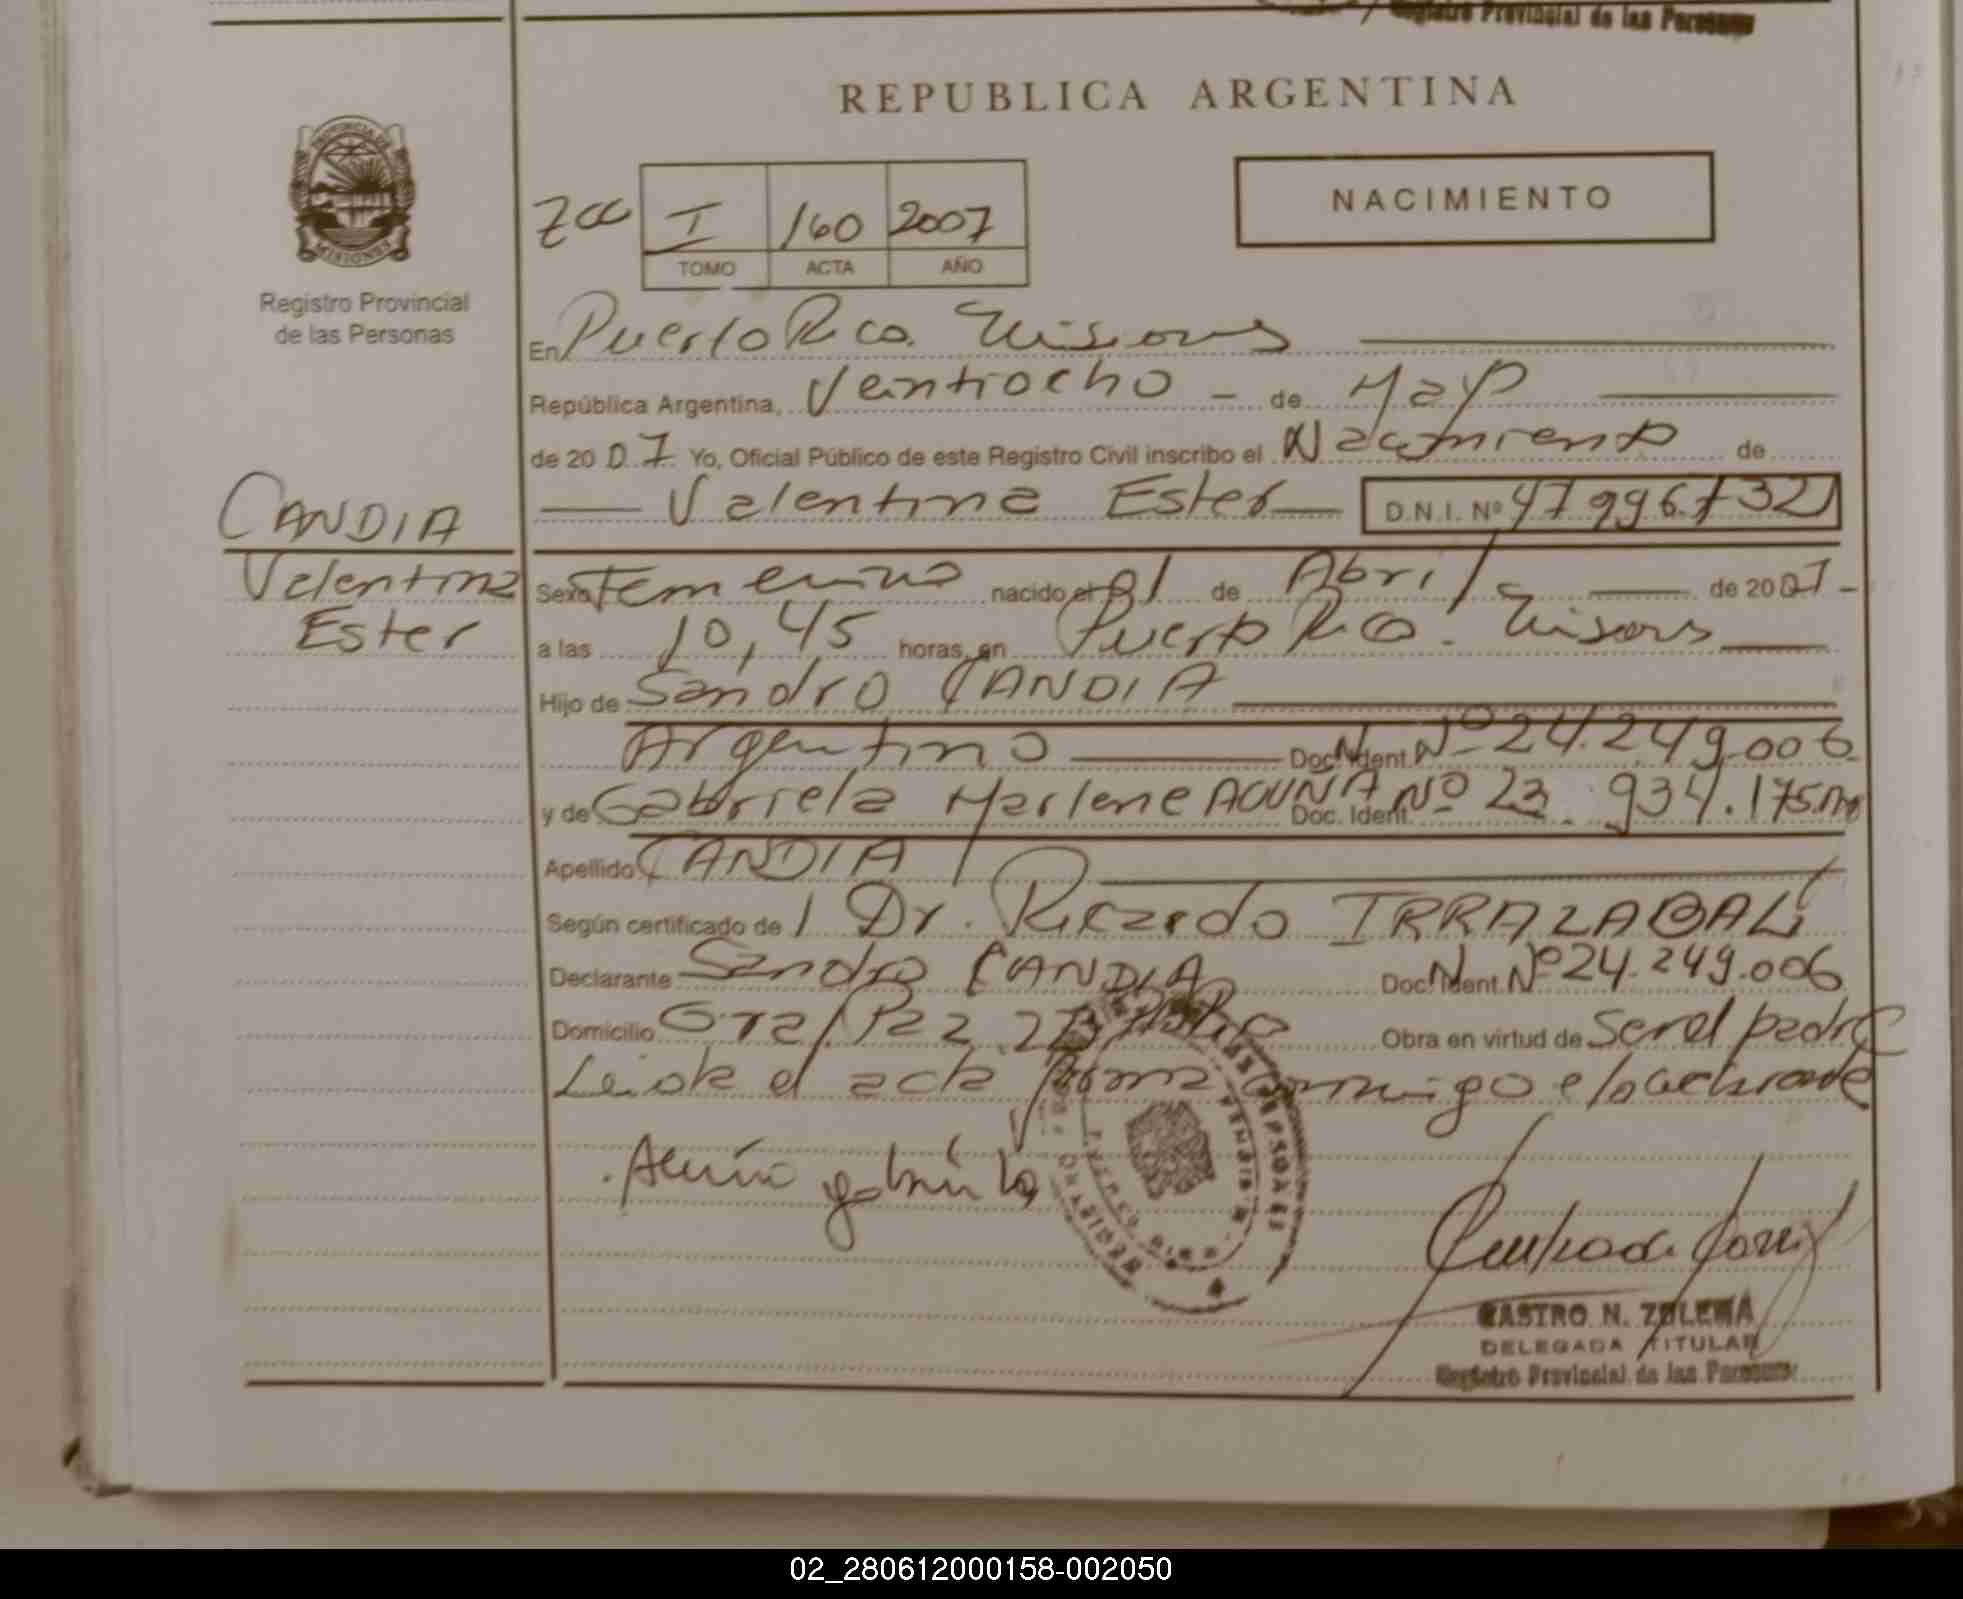 Registro Provincial de las Personas
REPUBLICA ARGENTINA
PROVINCIA DE
MISIONES
Registro Provincial
de las Personas
I 160 2007
TOMO ACTA AÑO
NACIMIENTO
En Puerto Rico. Misiones
República Argentina, Veintiocho - de Mayo
de 2007 Yo, Oficial Público de este Registro Civil inscribo el Nacimiento de
Valentina Ester D.N.I. Nº 47996732
CANDIA
Valentina
Ester
Sexo Femenino nacido el 01 de Abril de 2007-
a las 10,45 horas, en Puerto Rico. Misiones
Hijo de Sandro CANDIA
Argentino Doc. Ident. Nº 24.249.006
y de Gabriela Marlene ACUÑA Doc. Ident. Nº 23.934.175
Apellido CANDIA
Según certificado de Dr. Ricardo IRRAZABAL
Declarante Sandro CANDIA Doc. Ident. Nº 24.249.006
Domicilio Gral Paz Obra en virtud de Ser el padre
Leida el acta firma conmigo el declarante
Acuña Gabriela
CASTRO N. ZULEMA
DELEGADA TITULAR
Registro Provincial de las Personas
02_280612000158-002050